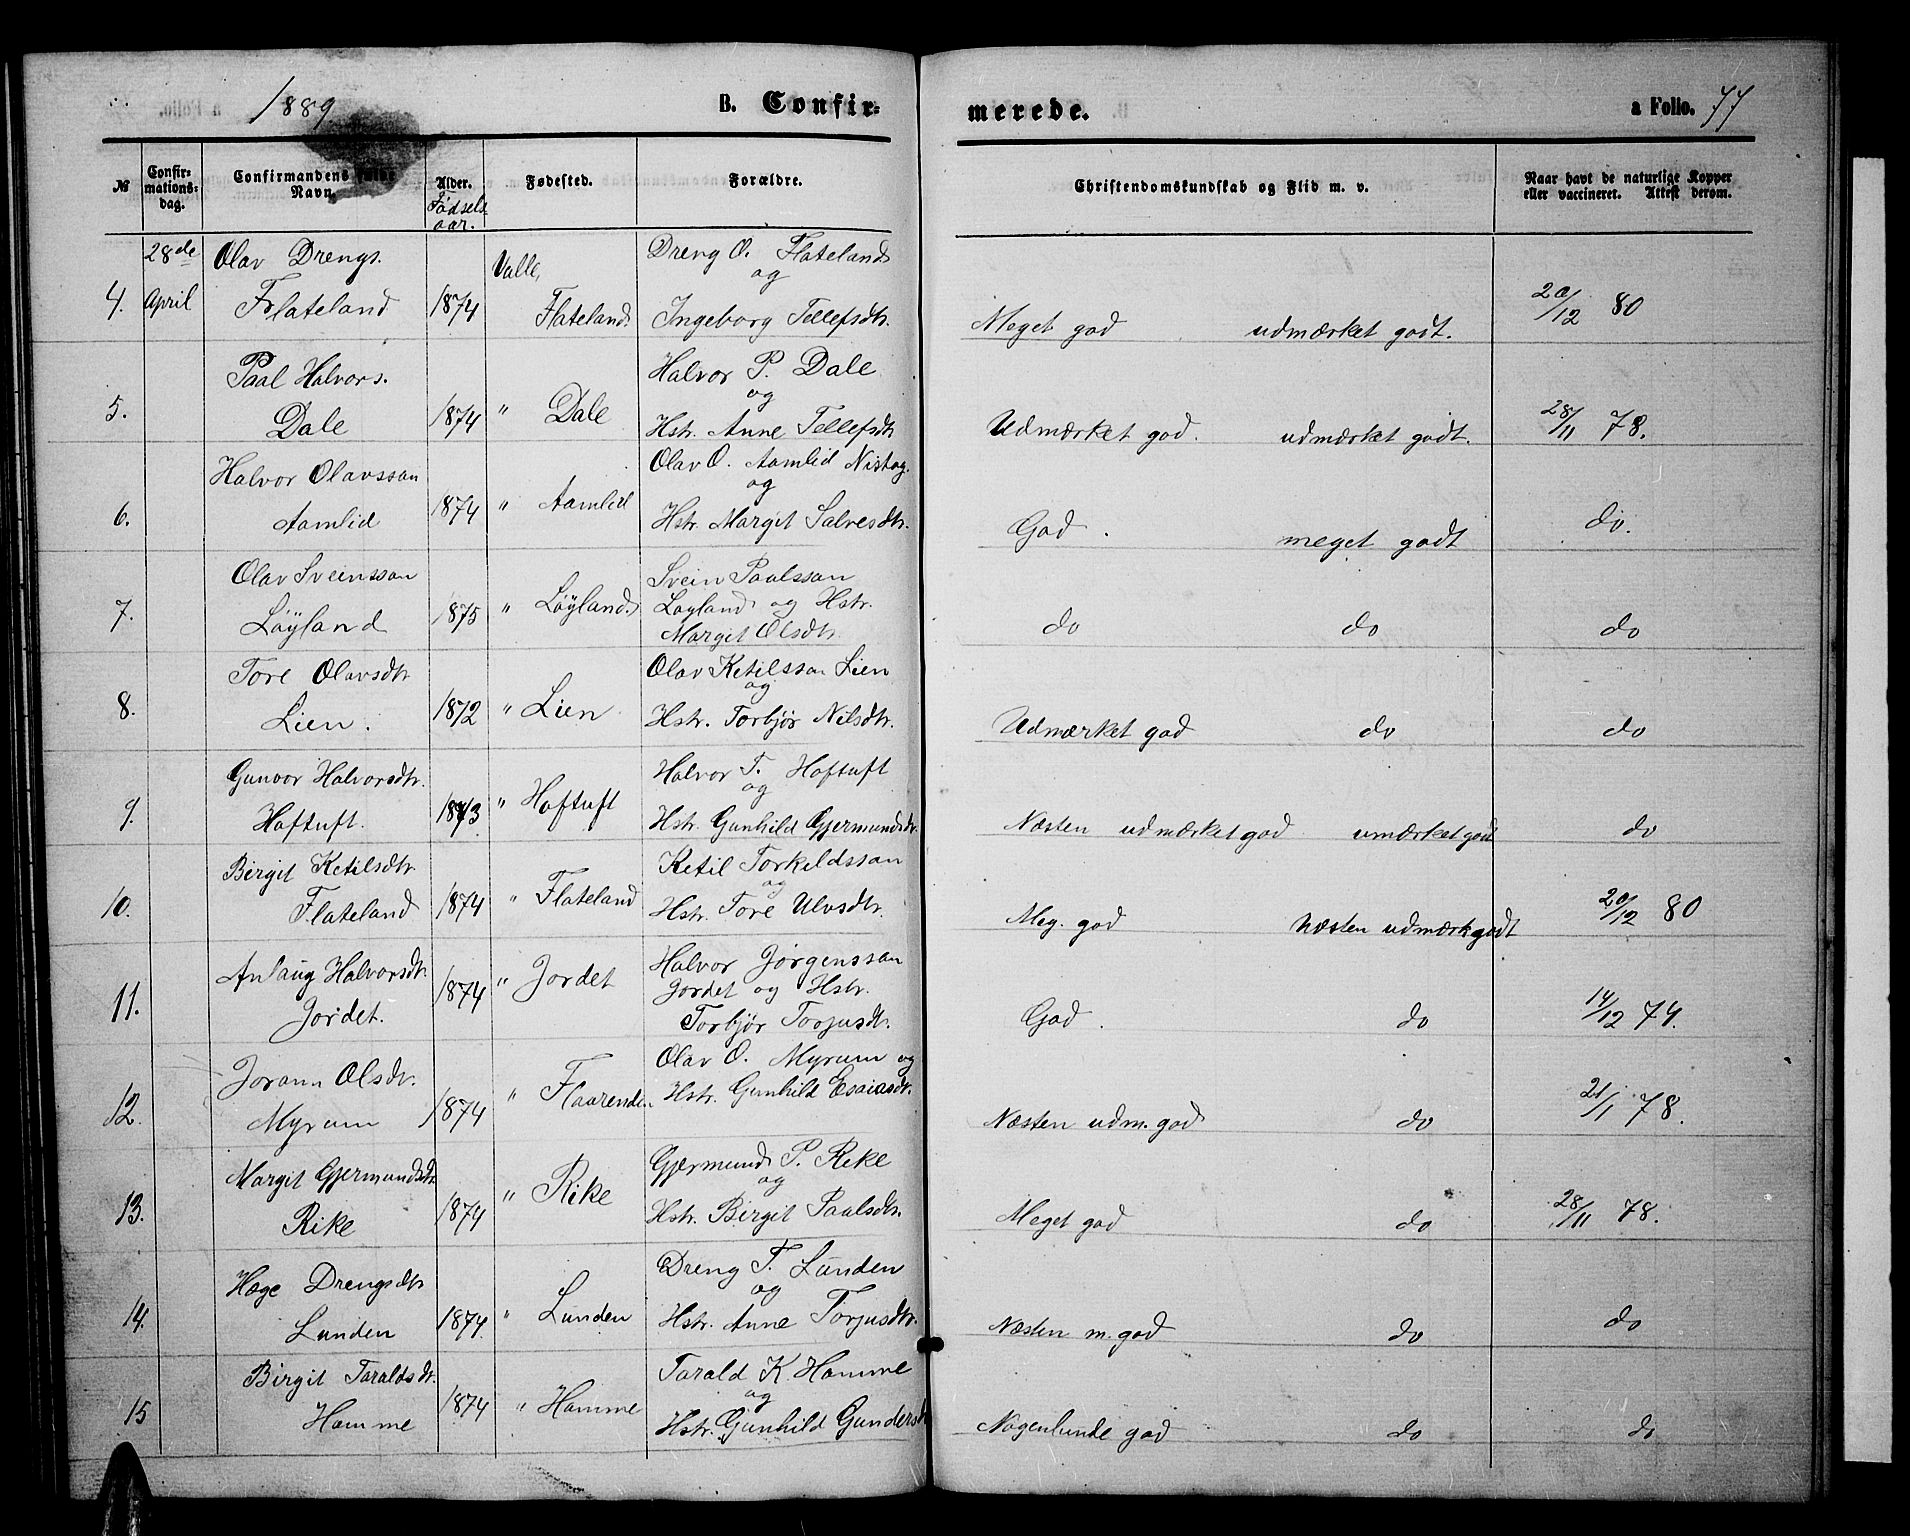 1889
B. Confirmerede.
a Folio. 77
№ Confirmationsdag. Confirmandens fulde Navn. Alder. Fødselsaar. Fødested. Forældre. Christendomskundskab og Flid m. v. Naar havt de naturlige Kopper eller vaccineret. Attest derom.
28de Olav Drengs. Valle, Dreng O. Flateland
og
4. April Flateland 1874 Flateland. Ingeborg Tellefsdtr. Meget god udmærket godt. 20/12 80
Paal Halvors. Halvor P. Dale
og
5. Dale 1874 " Dale Hstr. Anne Tellefsdtr Udmærket god. udmærket godt. 28/11 78.
Halvor Olavssan Olav O. Aamlid Nistog.
og
6. Aamlid 1874 " Aamlid Hstr. Margit Salvesdtr. God. meget godt do.
Olav Sveinssan Svein Paalssan
7. Löyland 1875 " Löyland. Löyland og Hstr. do do do
Margit Olsdtr.
Tore Olavsdtr Olav Ketilssan Lien
og
8. Lien. 1872 " Lien Hstr. Torbjør Nilsdtr. Udmærket god do do
Gunvor Halvorsdtr. Halvor T. Haftuft
og
9. Haftuft. 1873. " Haftuft Hstr. Gunhild Gjermundsdtr. Næsten udmærket god umærket godt do
Birgit Ketilsdtr. Ketil Torkildssan
og
10. Flateland 1874 " Flateland Hstr. Tore Ulvsdtr. Meg. god Næsten udmærk godt 20/12 80
Anlaug Halvorsdtr. Halvor Jørgenssan
11. Jordet. 1874 " Jordet Jordet og Hstr. God. do 14/12 74.
Torbjør Torjusdtr.
Jorann Olsdtr. Olav O. Myrum og
12. Myrum 1874 " Flaarenden Hstr. Gunhild Esaiasdtr. Næsten udm. god do 21/1 78.
Margit Gjermundsdtr Gjermund P. Rike
og
13. Rike 1874 " Rike Hstr. Birgit Paalsdtr. Meget god do 28/11 78.
Hæge Drengsdtr Dreng T. Lunden
og
14. Lunden 1874. " Lunden Hstr. Anne Torjusdtr. Næsten m. god do do
Birgit Taraldsdtr. Tarald K. Hamme
og
15 Hamme 1874 " Hamme Hstr. Gunhild Gundersdtr Nogenlunde god do do